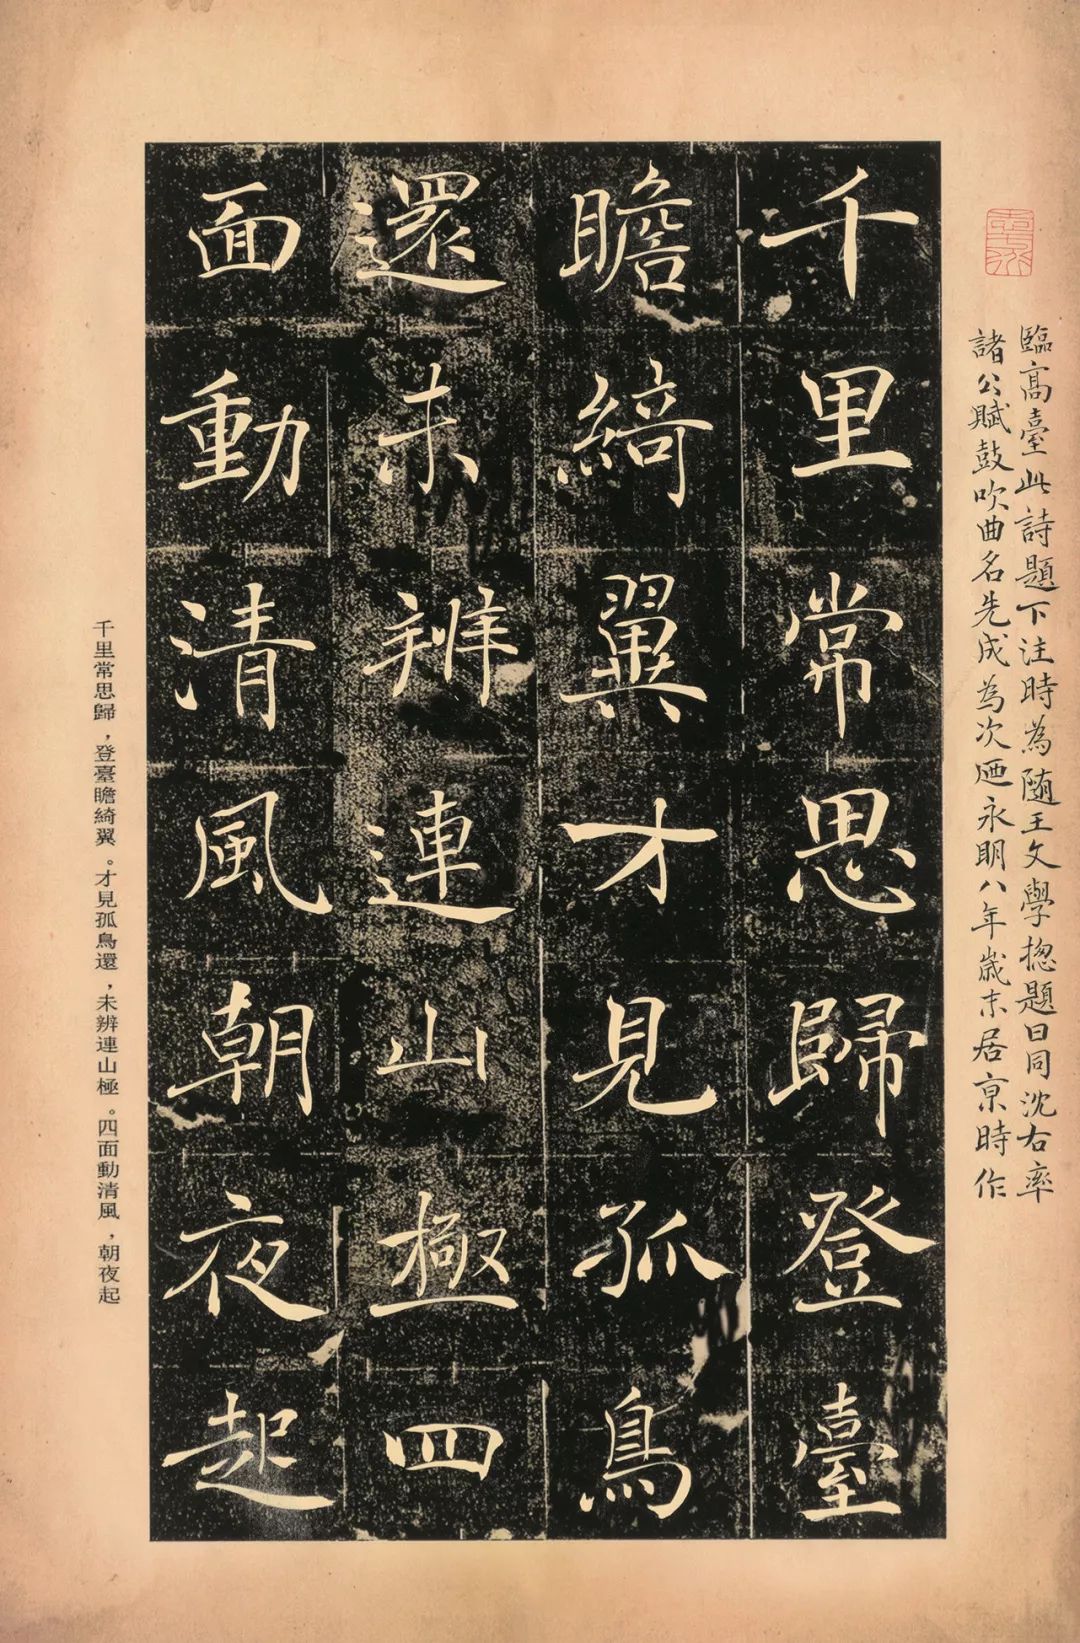 臨高臺此詩題下注時為隨王文學揔題曰同沈右率
諸公賦鼓吹曲名先成為次迺永明八年歲末居京時作
千里常思歸登臺
瞻綺翼才見孤鳥
還未辨連山極四
面動清風朝夜起
千里常思歸，登臺瞻綺翼。才見孤鳥還，未辨連山極。四面動清風，朝夜起